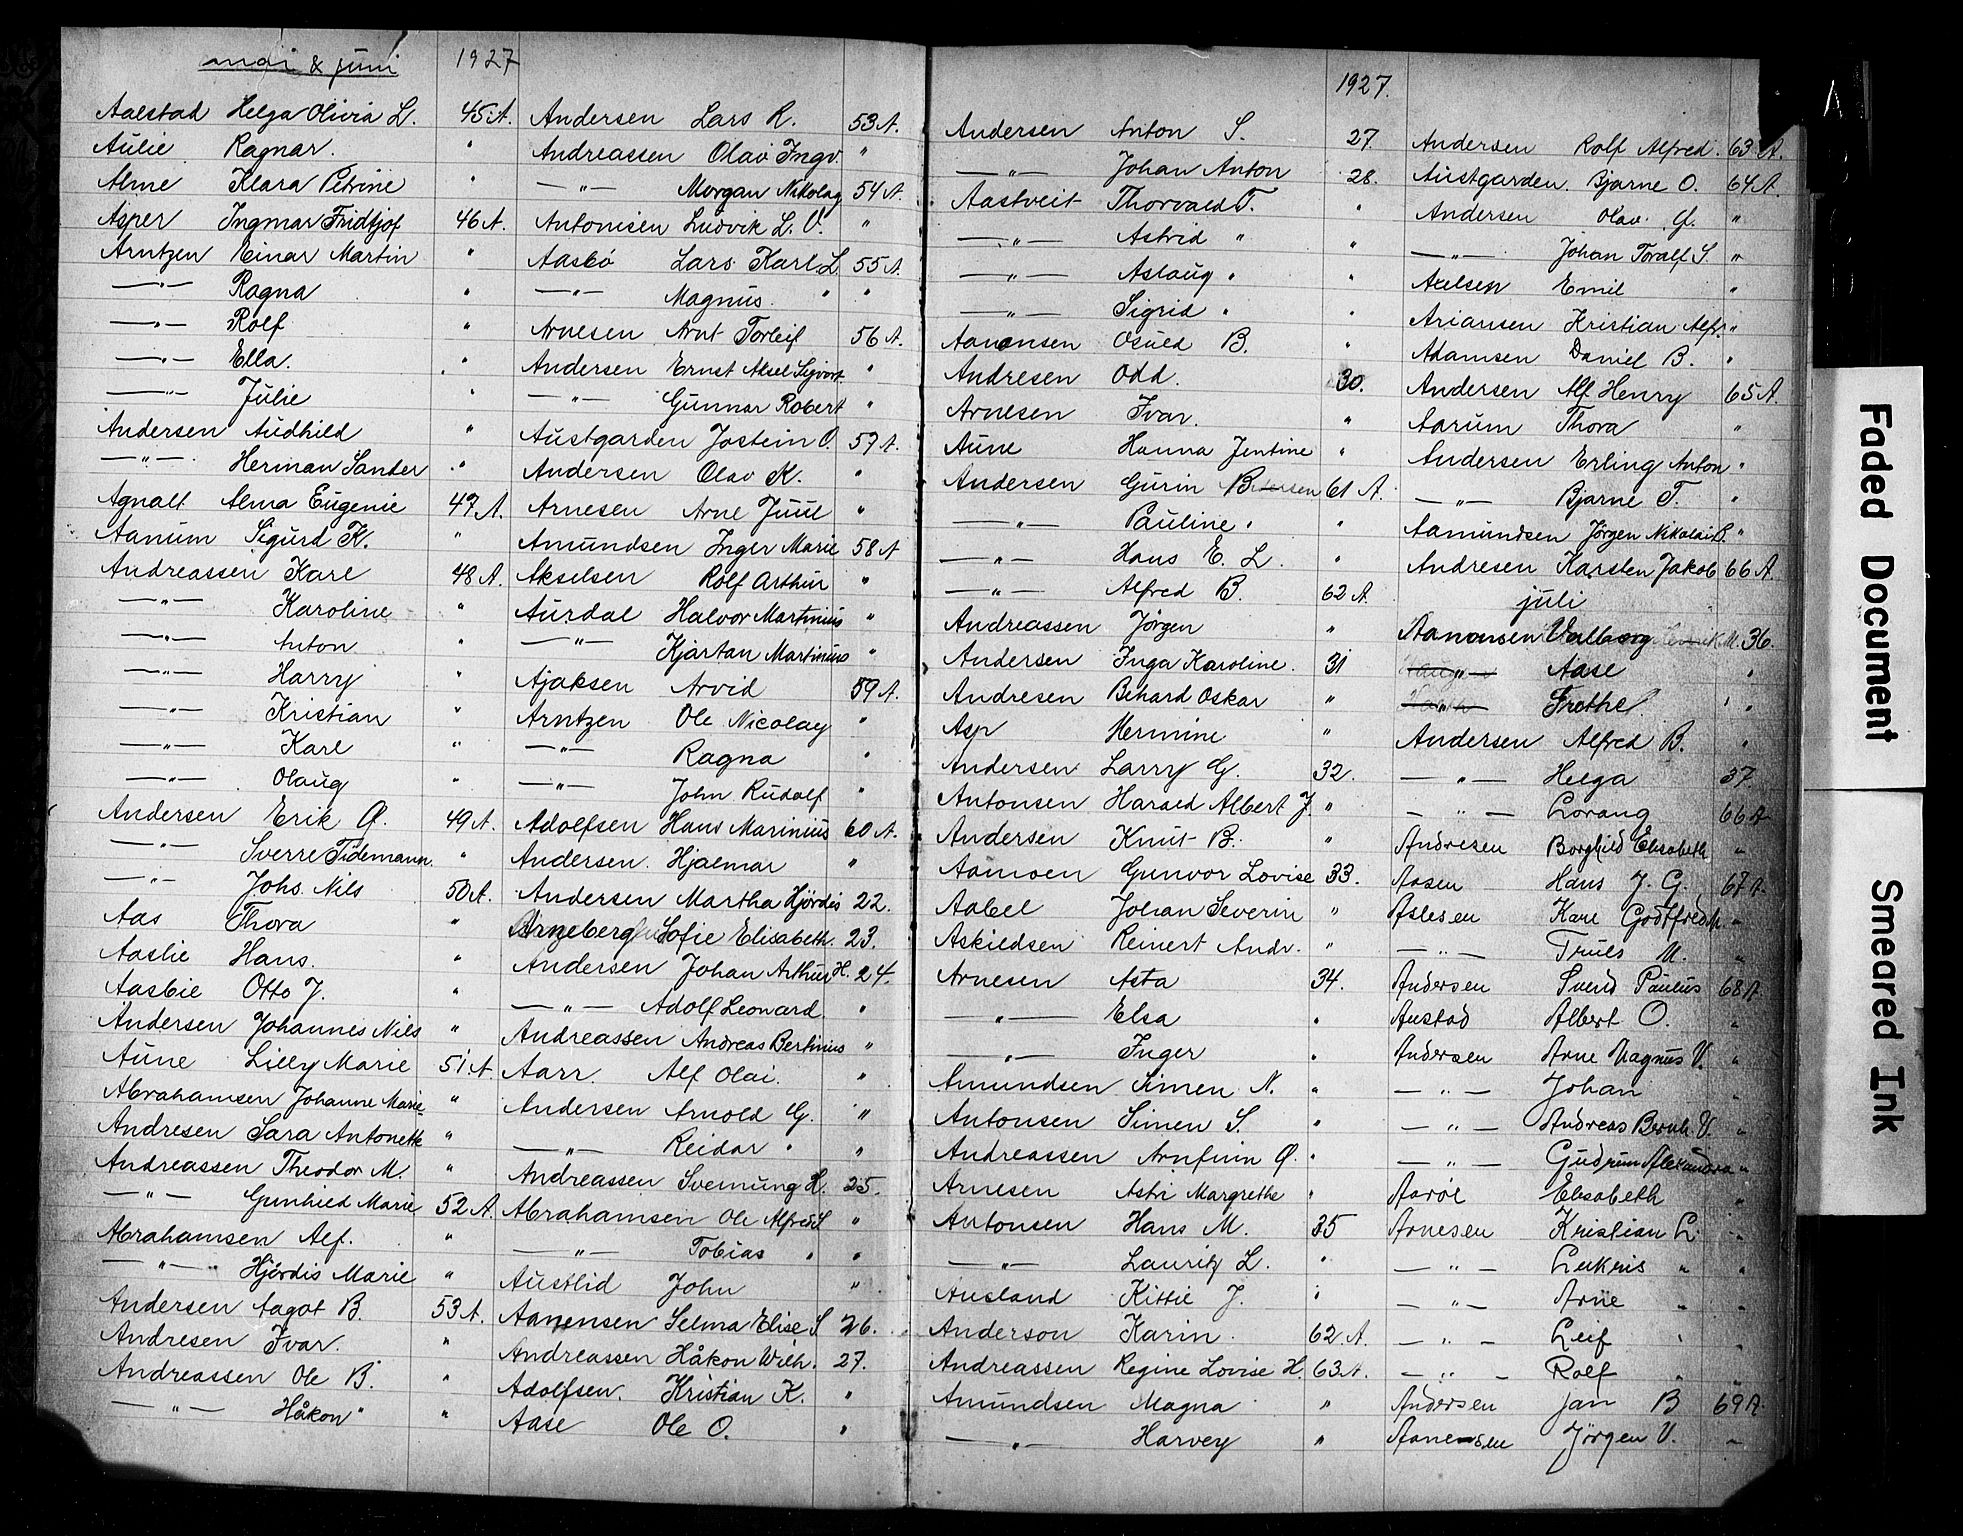 mai & juni 1927
Aalstad Helga Olivia L. 45 A.
Aulie Ragnar. "
Alme Klara Petrine "
Asper Ingmar Fridtjof 46 A.
Arntzen Einar Martin "
—"— Ragna "
—"— Rolf "
—"— Ella. "
—"— Julie "
Andersen Audhild "
—"— Herman Sander "
Agnalt Alma Eugenie 47 A.
Aanum Sigurd K. "
Andreassen Karl 48 A.
—"— Karoline "
—"— Anton "
—"— Harry "
—"— Kristian "
—"— Karl "
—"— Olaug "
Andersen Erik A. 49 A.
—"— Sverre Tidemann "
—"— Johs. Nils 50 A.
Aas Thora "
Aaslie Hans. "
Aasbie Otto J. "
Andersen Johannes Nils "
Aune Lilly Marie 51 A.
Abrahamsen Johanne Marie "
Andresen Sara Antonette "
Andreassen Theodor M. "
—"— Gunhild Marie 52 A.
Abrahamsen Alf. "
—"— Hjördis Marie "
Andersen Aagot B. 53 A.
Andresen Ivar. "
Andreassen Ole B. "
—"— Håkon " "
Andersen Lars R. 53 A.
Andreassen Olav Ingv. "
—"— Morgan Nikolay 54 A.
Antonisen Ludvik L. O. "
Aasbö Lars Karl L. 55 A.
—"— Magnus. " "
Arnesen Arnt Torleif 56 A.
Andersen Ernst Aksel Sigvart. "
—"— Gunnar Robert "
Austgarden Jostein O. 57 A.
Andersen Olav K. "
Arnesen Arne Juul "
Amundsen Inger Marie 58 A
Akselsen Rolf Arthur "
Aurdal Halvor Martinius "
—"— Kjartan Martinius "
Ajaksen Arvid 59 A.
Arntzen Ole Nicolay "
—"— Ragna "
—"— John Rudolf "
Adolfsen Hans Marinius 60 A.
Andersen. Hjalmar "
Andersen Martha Hjördis 22.
Arneberg Sofie Elisabeth. 23.
Andersen Johan Arthur H. 24.
—"— Adolf Leonard. "
Andreassen Andreas Bertinius "
Aarr. Alf Olai. "
Andersen Arnold G. "
—"— Reidar " "
Andreassen Svenung H. 25.
Abrahamsen Ole Alfred S "
—"— Tobias " "
Austlid John "
Aanensen Selma Elise S 26.
Andreassen Håkon Wilh. 27.
Adolfsen. Kristian K. "
Aase Ole O. "
1927.
Andersen Anton S. 27.
—"— Johan Anton 28.
Aastveit Thorvald T. "
—"— Astrid " "
—"— Aslaug " "
—"— Sigrid " "
Aanonsen Osuld B. "
Andresen Odd. 30.
Arnesen Ivar. "
Aune Hanna Jentine "
Andersen Gurin B 61 A.
—"— Pauline " "
—"— Hans E. L. "
—"— Alfred B. 62 A.
Andreassen Jörgen "
Andersen Inga Karoline. 31
Andresen Behard Oskar "
Asp Hermine "
Andersen Larry G. 32.
Antonsen Harald Albert J. "
Andersen Knut B. "
Aamoen Gunvor Lovise 33.
Aabel Johan Severin "
Askildsen Reinert Andr. "
Arnesen Asta 34.
—"— Elsa "
—"— Inger "
Amundsen Simen N. "
Antonsen Simen S. "
Andreassen Arnfinn O. "
Arnesen Astri Margrethe "
Antonsen Hans M. 35
—"— Lauritz L. "
Ausland Kittie J. "
Anderson Karin. 62 A.
Andreassen Regine Lovise H. 63 A.
Amundsen Magna "
—"— Harvey "
Andersen Rolf Alfred. 63 A.
Austgarden. Bjarne O. 64 A.
Andersen Olav. G. "
—"— Johan Toralf S. "
Axelsen Emil "
Ariansen Kristian Alfr. "
Adamsen Daniel B. "
Andersen Alf Henry 65 A.
Aarum Thora "
Andersen Erling Anton "
—"— Bjarne T. "
Aamundsen Jörgen Nikolai S. "
Andresen Karsten Jakob 66 A.
juli
Aanonsen Valborg M. 36.
—"— Aase "
—"— Grethe "
Andersen Alfred B. "
—"— Helga 37.
—"— Lorang 66 A
Andresen Borghild Elisabeth "
Aasen Hans J. G. 67 A.
Aslesen Karl Godtfred "
—"— Truls M. "
Andersen Svend Paulus 68 A.
Austad Albert O. "
Andersen Arne Magnus V. "
—"— Johan "
—"— Andreas Bernh. V. "
—"— Gudrun Alexandra "
Aaröe Elisabeth "
Arnesen Kristian L. "
—"— " "
—"— Arne " "
—"— Leif " "
—"— Rolf " "
Andersen Jan B 69 A.
Aanensen Jörgen V. "
Faded Document
Smeared Ink